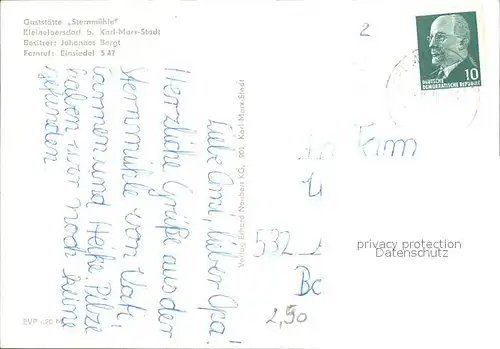 Gaststätte „Sternmühle"
Kleinolbersdorf b. Karl-Marx-Stadt
Besitzer: Johannes Bergt
Fernruf: Einsiedel 3 42
2
10
DEUTSCHE
DEMOKRATISCHE REPUBLIK
Liebe Omi, lieber Opa!
Herzliche Grüße aus der
Sternmühle von Vati
Carmen und Heike. Pilze
haben wir noch keine
gefunden.
Verlag Erhard Neubert KG, 901 Karl-Marx-Stadt
Fam
532
privacy protection
Datenschutz
2,50
EVP -,20 M